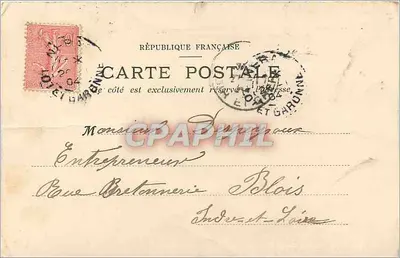 RÉPUBLIQUE FRANÇAISE
CARTE POSTALE
Ce côté est exclusivement réservé à l'adresse
LOT ET GARONNE
LOT ET GARONNE
CPAPHIL
Monsieur
Entrepreneur
Rue Bretonnerie Blois
Indre-et-Loire